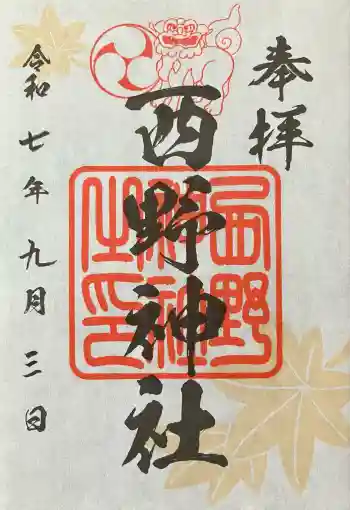 奉拝
西野神社
西野
神社
之印
令和七年九月三日